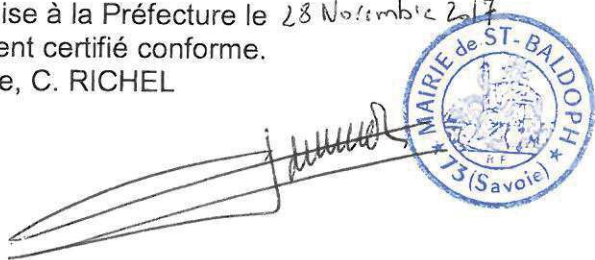 ise à la Préfecture le 28 Novembre 2017
ent certifié conforme.
e, C. RICHEL
MAIRIE de ST-BALDOPH
R F
* 73 (Savoie) *